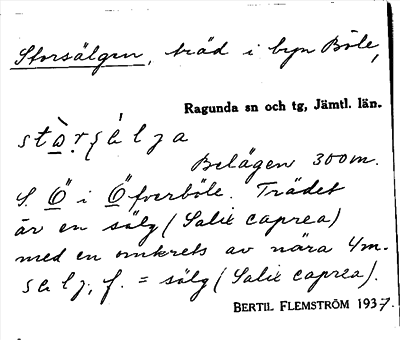 Storsälgen, träd i byn Böle,
Ragunda sn och tg, Jämtl. län.
Belägen 300m.
S. Ö i Överböle. Trädet
är en sälg (Salix caprea)
med en omkrets av nära 4m.
f. = sälg (Salix caprea).
BERTIL FLEMSTRÖM 1937.